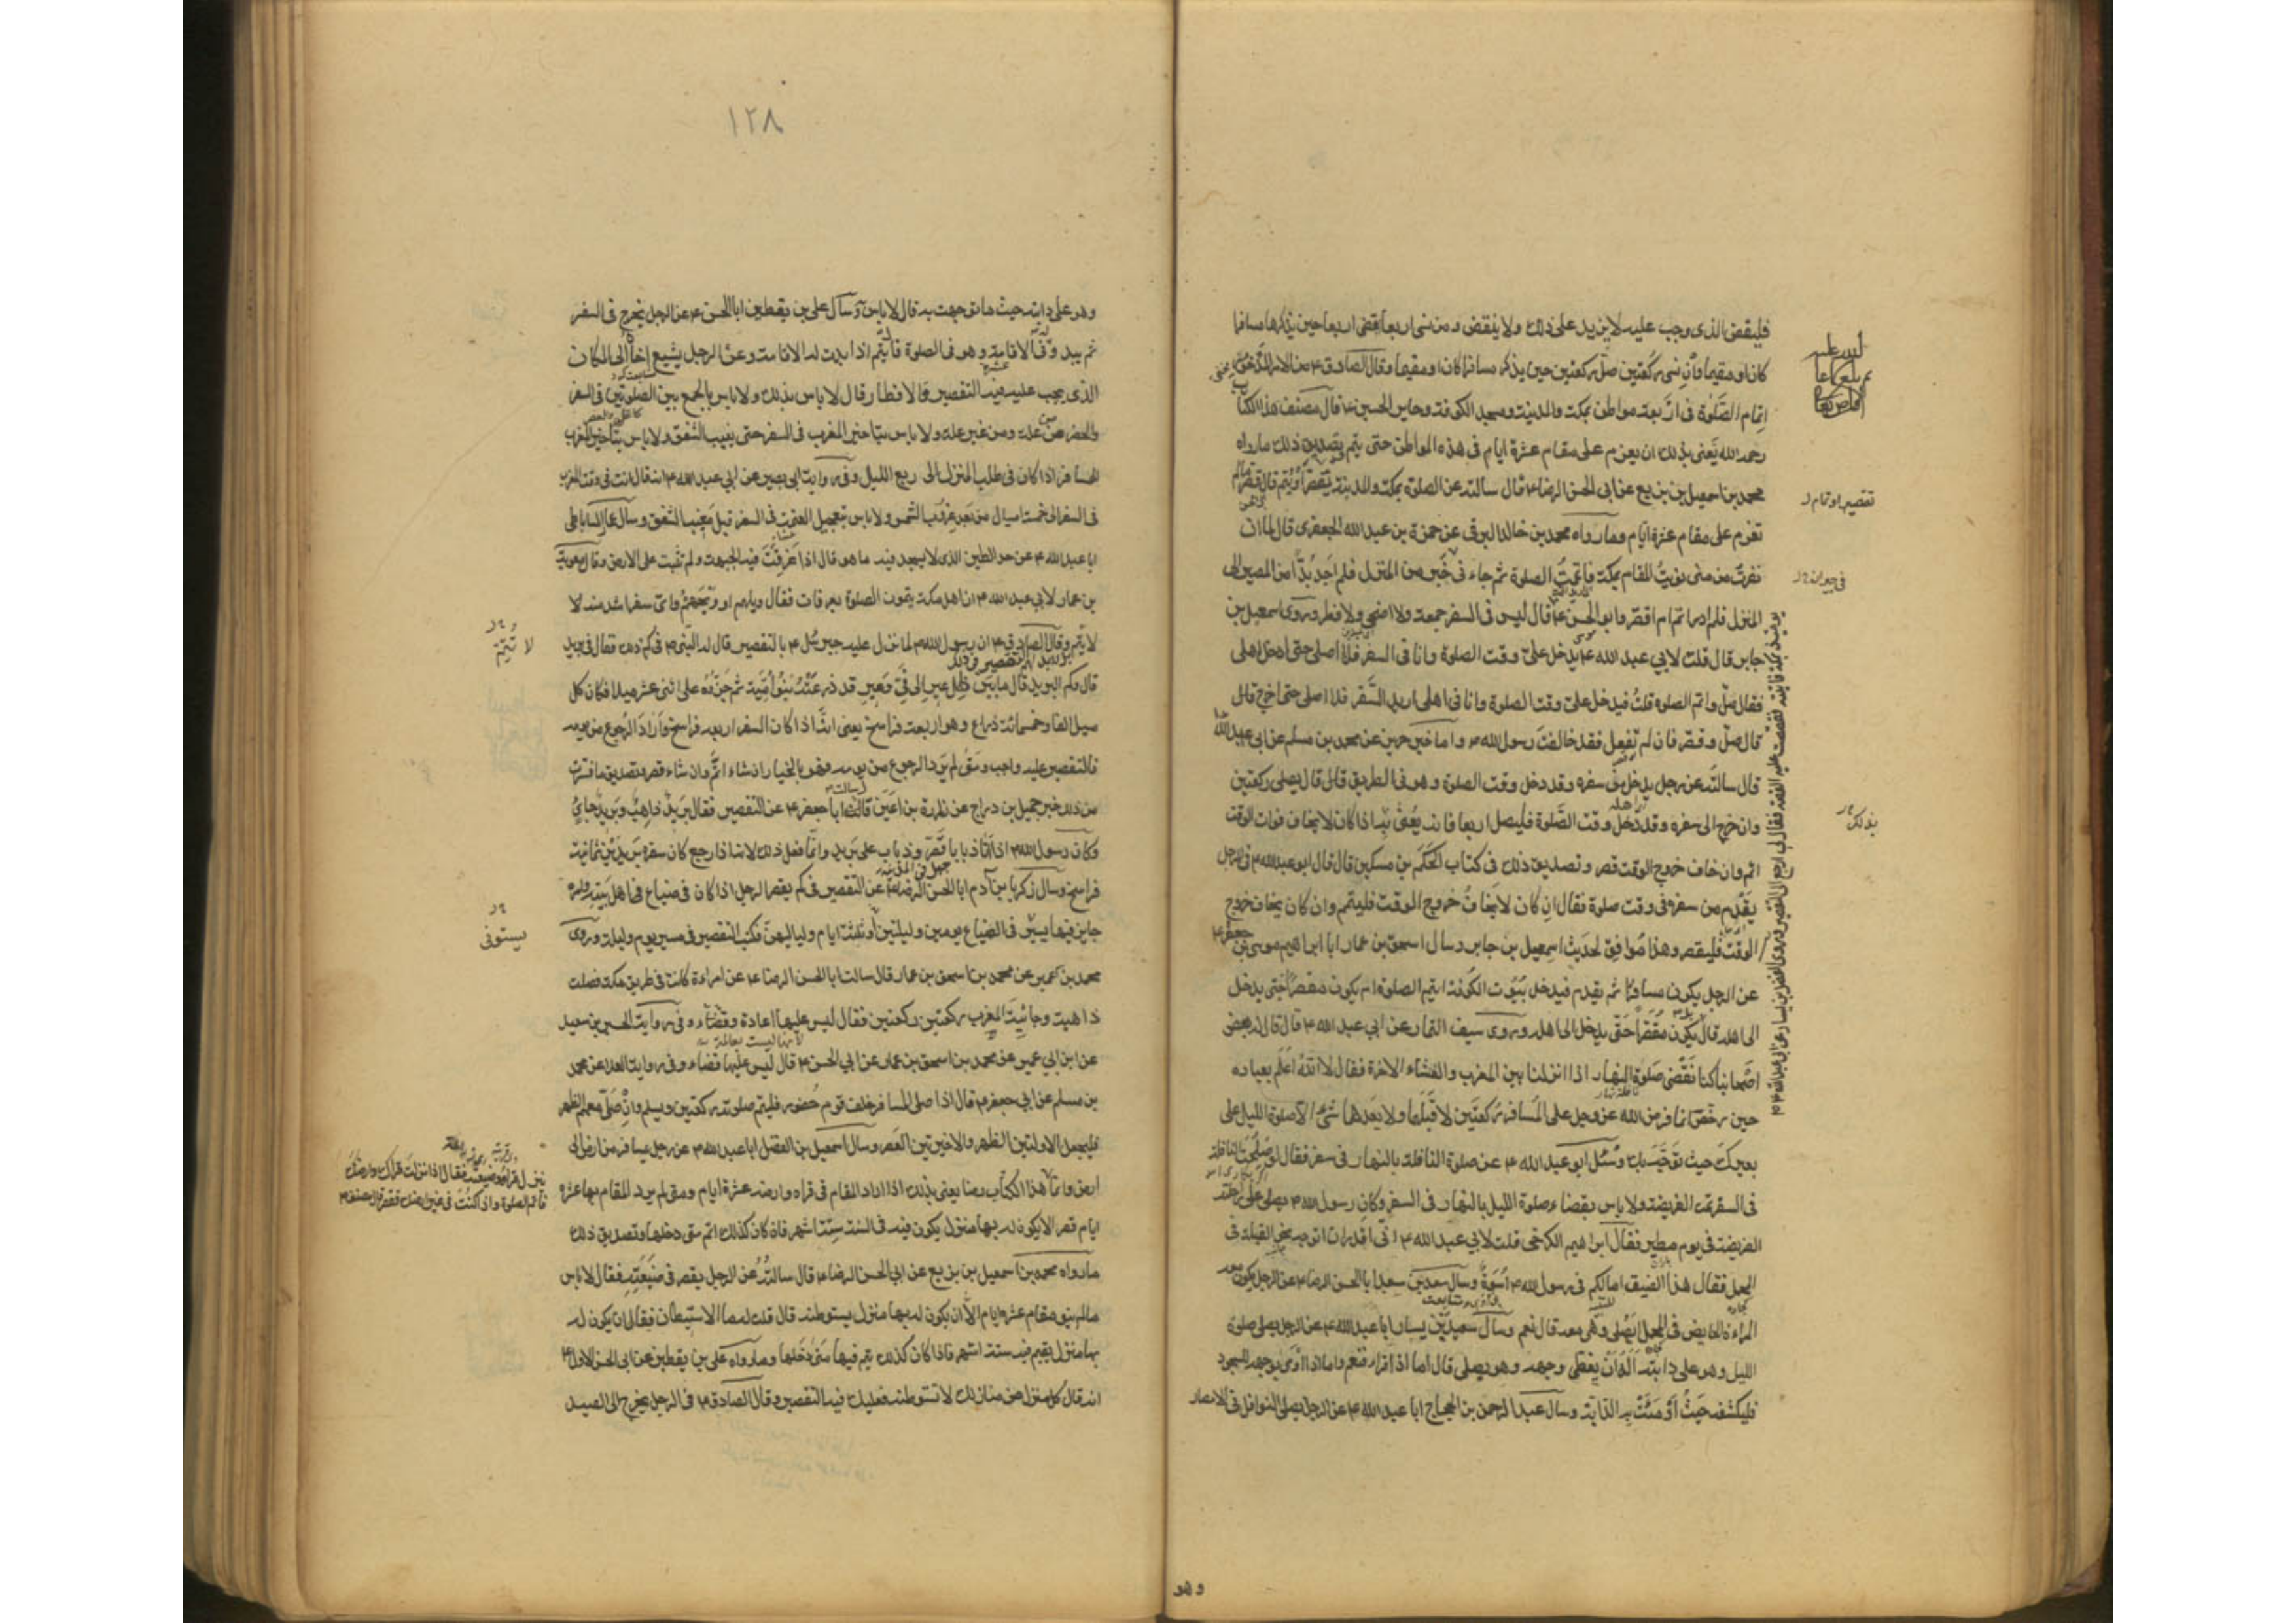 فليقض الذى وجب عليه لا يزيد على ذلك ولا ينقض ومن نسى اربعا يقضى اربعا حين يذكرها مسافرا
كان او مقيما وان نسى ركعتين صلى ركعتين حين يذكر مسافرا كان او مقيما وقال الصادق ۴ من الامر المذخور
اتمام الصلوة فى اربعة مواطن بمكة والمدينة ومسجد الكوفة وحاير الحسين ۴ قال مصنف هذا الكتاب
رحمه الله يعنى بذلك ان يعزم على مقام عشرة ايام فى هذه المواطن حتى يتم وتصديق ذلك ما رواه
محمد بن اسمعيل بن بزيع عن ابى الحسن الرضا ۴ قال سالته عن الصلوة بمكة والمدينة يقصر او يتم قال قصر ما لم
تعزم على مقام عشرة ايام وما رواه محمد بن خالد البرقى عن حمزة بن عبد الله الجعفرى قال لما ان
نفرت من منى نويت المقام بمكة فاتممت الصلوة ثم جاء فى خبر من المنزل فلم اجد بدا من المصير الى
المنزل فلم ادر اتم ام اقصر وابو الحسن ۴ قال ليس فى السفر جمعة ولا اضحى ولا فطر وروى اسمعيل بن
جابر قال قلت لابي عبد الله ۴ يدخل علىّ وقت الصلوة وانا فى السفر فلا اصلى حتى ادخل اهلى
فقال صل واتم الصلوة قلت فيدخل على وقت الصلوة وانا فى اهلى اريد السفر فلا اصلى حتى اخرج قال
قال صل وقصر فان لم تفعل فقد خالفت رسول الله ۴ واما خبر حريز عن محمد بن مسلم عن ابى عبد الله
قال سالته عن رجل يدخل من سفره وقد دخل وقت الصلوة وهو فى الطريق قال قال يصلى ركعتين
وان خرج الى سفره وقد دخل وقت الصلوة فليصل اربعا فانه يعنى به اذا كان لا يخاف فوات الوقت
اتم وان خاف خروج الوقت قصر وتصديق ذلك فى كتاب الحكم بن مسكين قال قال ابو عبد الله ۴ فى الرجل
يقدم من سفره فى وقت صلوة فقال ان كان لا يخاف خروج الوقت فليتم وان كان يخاف خروج
الوقت فليقصر وهذا موافق لحديث اسمعيل بن جابر وسال اسحق بن عمار ابا ابراهيم موسى بن جعفر ۴
عن الرجل يكون مسافرا ثم يقدم فيدخل بيوت الكوفة ايتم الصلوة ام يكون مقصرا حتى يدخل
الى اهله قال يكون مقصرا حتى يدخل الى اهله وروى سيف التمار عن ابي عبد الله ۴ قال قال له بعض
اصحابنا كنا نقضى صلوة النهار اذا نزلنا بين المغرب والعشاء الاخرة فقال لا الله اعلم بعباده
حين رخص انما فرض الله عز وجل على المسافر ركعتين لا قبلها ولا بعدها شىء الا صلوة الليل على
بعيرك حيث توجه بك وسئل ابو عبد الله ۴ عن صلوة النافلة بالنهار فى سفر فقال لو صلحت النافلة
فى السفر تمت الفريضة ولا باس بقضاء صلوة الليل بالنهار فى السفر وكان رسول الله ۴ يصلى على راحلته
الفريضة فى يوم مطير فقال ابراهيم الكرخى قلت لابي عبد الله ۴ انى اقدر ان اتوجه نحو القبلة فى
المحمل فقال هذا الضيق اما لكم فى رسول الله ۴ اسوة وسال سعد بن سعد ابا الحسن الرضا ۴ عن الرجل يكون معه
المراءة الحايض فى المحمل ايصلى وهى معه قال نعم وسال سعيد بن يسار ابا عبد الله ۴ عن الرجل يصلى صلوة
الليل وهو على دابته اله ان يغطى وجهه وهو يصلى قال اما اذا قرا فنعم واما اذا اومى بوجهه للسجود
فليكشفه حيث اومت به الدابة وسال عبد الرحمن بن الحجاج ابا عبد الله ۴ عن الرجل يصلى النوافل فى الامصار
تقصير او تمام
وهو
١٢٨
وهو على دابته حيث ما توجهت به قال لا باس وسال على بن يقطين ابا الحسن ۴ عن الرجل يخرج فى السفر
ثم يبدو له فى الاقامة وهو فى الصلوة قال يتم اذا بدت له الاقامة وعن الرجل يشيع اخاه الى المكان
الذى يجب عليه فيه التقصير والافطار قال لا باس بذلك ولا باس بالجمع بين الصلوتين فى السفر
والحضر من علة ومن غير علة ولا باس بتاخير المغرب فى السفر حتى يغيب الشفق ولا باس بتاخير المغرب
للمسافر اذا كان فى طلب المنزل الى ربع الليل وفى رواية ابى بصير عن ابي عبد الله ۴ انه قال انت فى وقت المغرب
فى السفر الى خمسة اميال من بعد غروب الشمس ولا باس بتعجيل العتمة فى السفر قبل مغيب الشفق وسال عمار الساباطى
ابا عبد الله ۴ عن حد الطين الذى لا يسجد فيه ما هو قال اذا غرقت فيه الجبهة ولم تثبت على الارض وقال معوية
بن عمار لابي عبد الله ۴ ان اهل مكة يتمون الصلوة بعرفات فقال ويلهم او ويحهم واى سفر اشد منه لا
لا يتم وقال الصادق ۴ ان رسول الله ۴ لما نزل عليه جبرئيل ۴ بالتقصير قال له النبى ۴ فى كم ذلك فقال فى بريد
قال وكم البريد قال ما بين ظل عير الى فئ وعير قد ذرعته بنو امية ثم جزوه على اثنى عشر ميلا فكان كل
ميل الفا وخمسمائة ذراع وهو اربعة فراسخ يعنى انه اذا كان السفر اربعة فراسخ واراد الرجوع من يومه
فالتقصير عليه واجب ومتى لم يرد الرجوع من يومه فهو بالخيار ان شاء اتم وان شاء قصر وتصديق ما فسرت
من ذلك خبر جميل بن دراج عن زرارة بن اعين قال سالت ابا جعفر ۴ عن التقصير فقال بريد ذاهب وبريد جاى
وكان رسول الله ۴ اذا اتى ذبابا قصر وذباب على بريد وانما فعل ذلك لانه اذا رجع كان سفره بريدين ثمانية
فراسخ وسال زكريا بن آدم ابا الحسن الرضا ۴ عن التقصير فى كم يقصر الرجل اذا كان فى ضياع اهل بيته وامره
جايز فيها يسير فى الضياع يومين وليلتين او ثلثة ايام ولياليهن فكتب التقصير فى مسير يوم وليلة وروى
محمد بن ابى عمير عن محمد بن اسحق بن عمار قال سالت ابا الحسن الرضا ۴ عن امراءة كانت فى طريق مكة فصلت
ذاهبة وجائية المغرب ركعتين ركعتين فقال ليس عليها اعادة وقضاء وفى رواية الحسين بن سعيد
عن ابن ابي عمير عن محمد بن اسحق بن عمار عن ابي الحسن ۴ قال ليس عليها قضاء وفى رواية العلا عن محمد
بن مسلم عن ابي جعفر ۴ قال اذا صلى المسافر خلف قوم حضور فليتم صلوته ركعتين ويسلم وان صلى معهم الظهر
فليجعل الاولتين الظهر والاخيرتين العصر وسال اسمعيل بن الفضل ابا عبد الله ۴ عن رجل يسافر من ارض الى
ارض وانما هذا الكتاب رضا يعنى بذلك اذا اراد المقام فى قراه وارضه عشرة ايام ومتى لم يرد المقام بها عشرة
ايام قصر الا ان يكون له بها منزل يكون فيه فى السنة ستة اشهر فان كان كذلك اتم متى دخلها وتصديق ذلك
ما رواه محمد بن اسمعيل بن بزيع عن ابي الحسن الرضا ۴ قال سالته عن الرجل يقصر فى ضيعته فقال لا باس
ما لم ينو مقام عشرة ايام الا ان يكون له بها منزل يستوطنه قال قلت له ما الاستيطان فقال ان يكون له
بها منزل يقيم فيه ستة اشهر فاذا كان كذلك يتم فيها متى دخلها وما رواه على بن يقطين عن ابى الحسن الاول ۴
انه قال كل منزل من منازلك لا تستوطنه فعليك فيه التقصير وقال الصادق ۴ فى الرجل يخرج الى الصيد
لا تتم
يستوفى
ينزل قراه وضيعته فقال اذا نزلت قراك وارضك
فاتم الصلوة واذا كنت فى غير ارضك فقصر قال مصنف